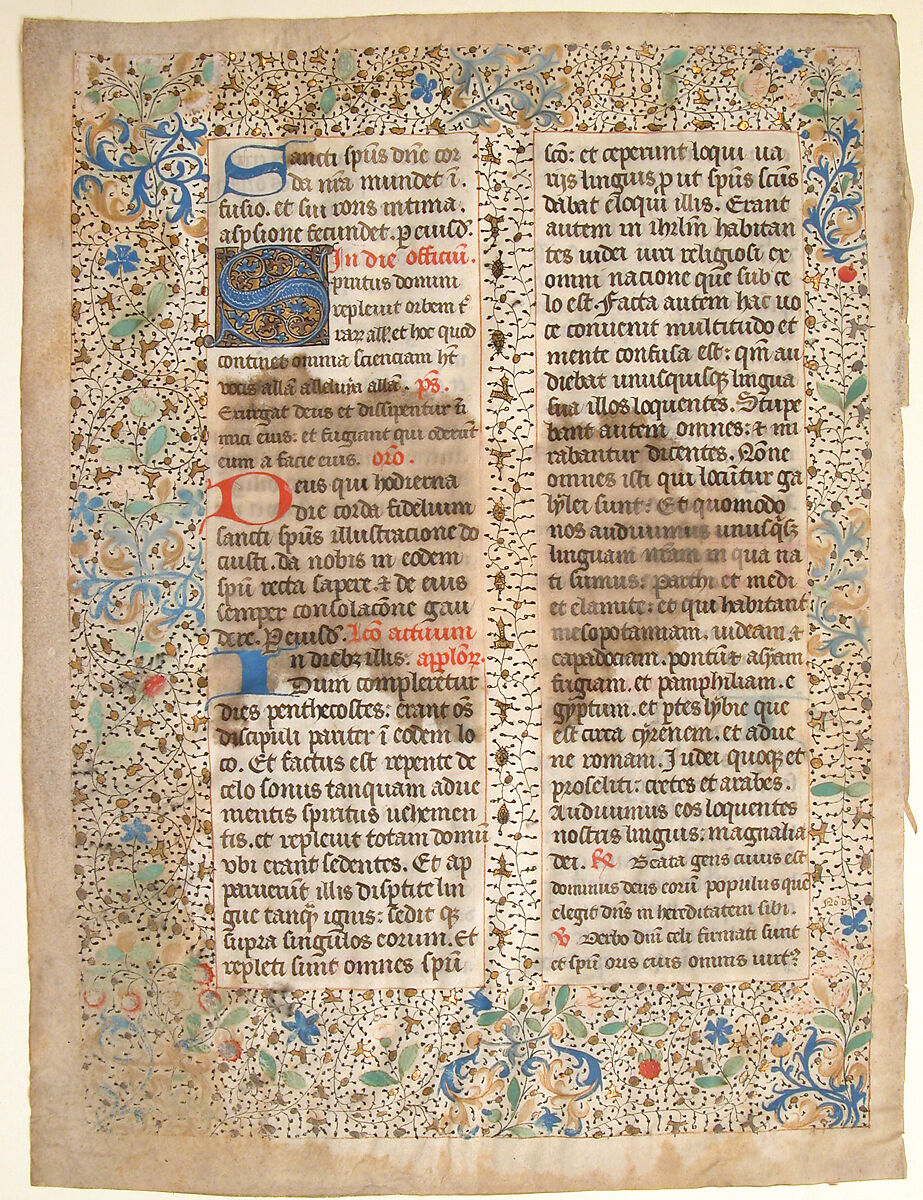 Sancti spūs dn̄e cor
da nr̄a mundet ī
fusio. et sui roris intima
aspsione fecundet. p eiusd̄.
In die officiū.
Spiritus domini
repleuit orbem t̄
rarꝝ all̄. et hoc quod
continet omnia scienciam ht̄
uocis allā alleluia allā. ps̄.
Exurgat deus et dissipentur īi
mici eius: et fugiant qui oderūt
eum a facie eius. or̄o.
Deus qui hodierna
die corda fidelium
sancti spūs illustracione do
cuisti. da nobis in eodem
spū recta sapere. ⁊ de eius
semper consolacōne gau
dere. P eiusd̄. Lc̄o actuum
In diebꝫ illis: app̄loꝝ.
Dum complerētur
dies penthecostes: erant os̄
discipuli pariter ī eodem lo
co. Et factus est repente de
celo sonus tanquam adue
mentis spiritus uehemen
tis. et repleuit totam domū
vbi erant sedentes. Et ap
paruerūt illis disptite lin
gue tanqͣ ignis: sedit qꝫ
supra singulos eorum. Et
repleti sunt omnes spū
scō: et ceperunt loqui ua
rijs linguis p ut spūs scūs
dabat eloqui illis. Erant
autem in ihrlm̄ habitan
tes iudei uiri religiosi ex
omni nacione que sub ce
lo est. Facta autem hac uo
ce conuenit multitudo et
mente confusa est: qm̄ au
diebat unusquisqꝫ lingua
sua illos loquentes. Stupe
bant autem omnes: ⁊ mi
rabantur dicentes. Nōne
omnes isti qui locūtur ga
lylei sunt: Et quomodo
nos audiuimus unusqꝫqꝫ
linguam nr̄am in qua na
ti sumus: Parthi et medi
et elamite: et qui habitant
mesopotamiam. iudeam ⁊
capadociam. pontū ⁊ asyam
frigiam. et pamphiliam. e
gyptum. et ptes lybie que
est circa cyrenem. et adue
ne romani. Iudei quoqꝫ et
proseliti: cretes et arabes.
Audiuimus eos loquentes
nostris linguis: magnalia
dei. R Beata gens cuius est
dominus deus eorū populus quē
elegit dn̄s in hereditatem sibi.
V Verbo dn̄i celi firmati sunt
et spū oris eius omnis uirtꝰ